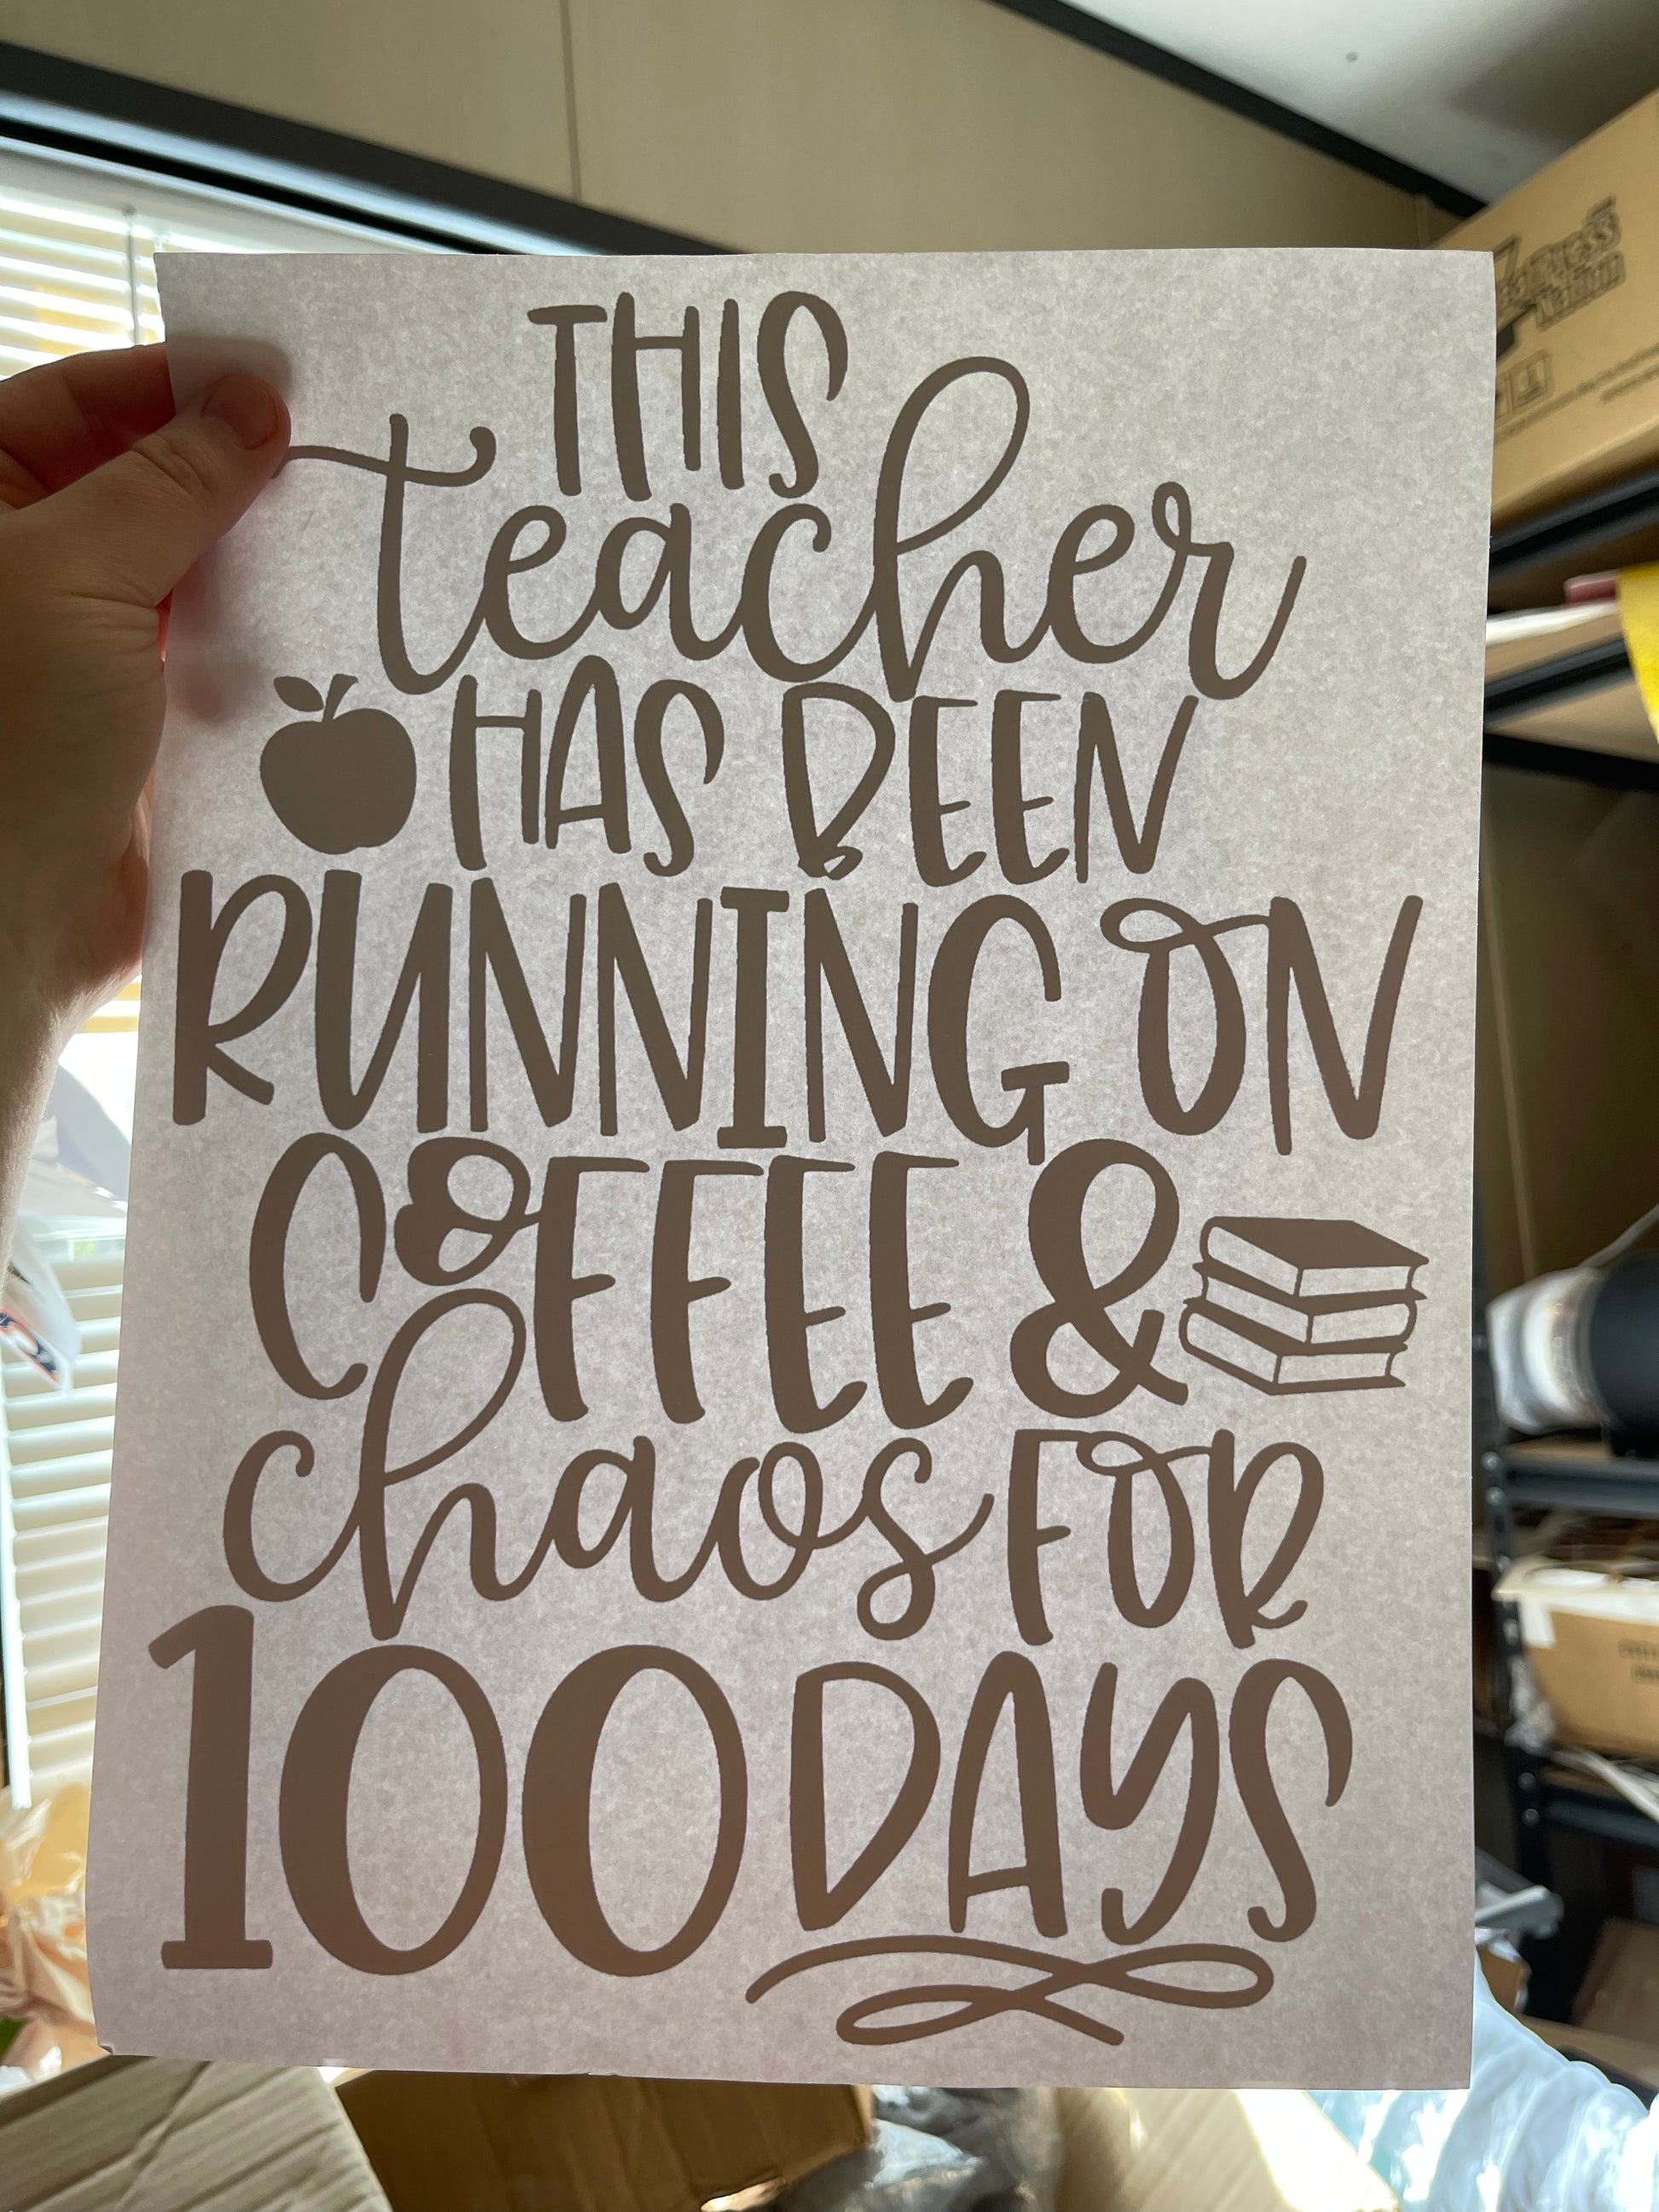 THIS
teacher
HAS BEEN
RUNNING ON
COFFEE &
chaos FOR
100 DAYS